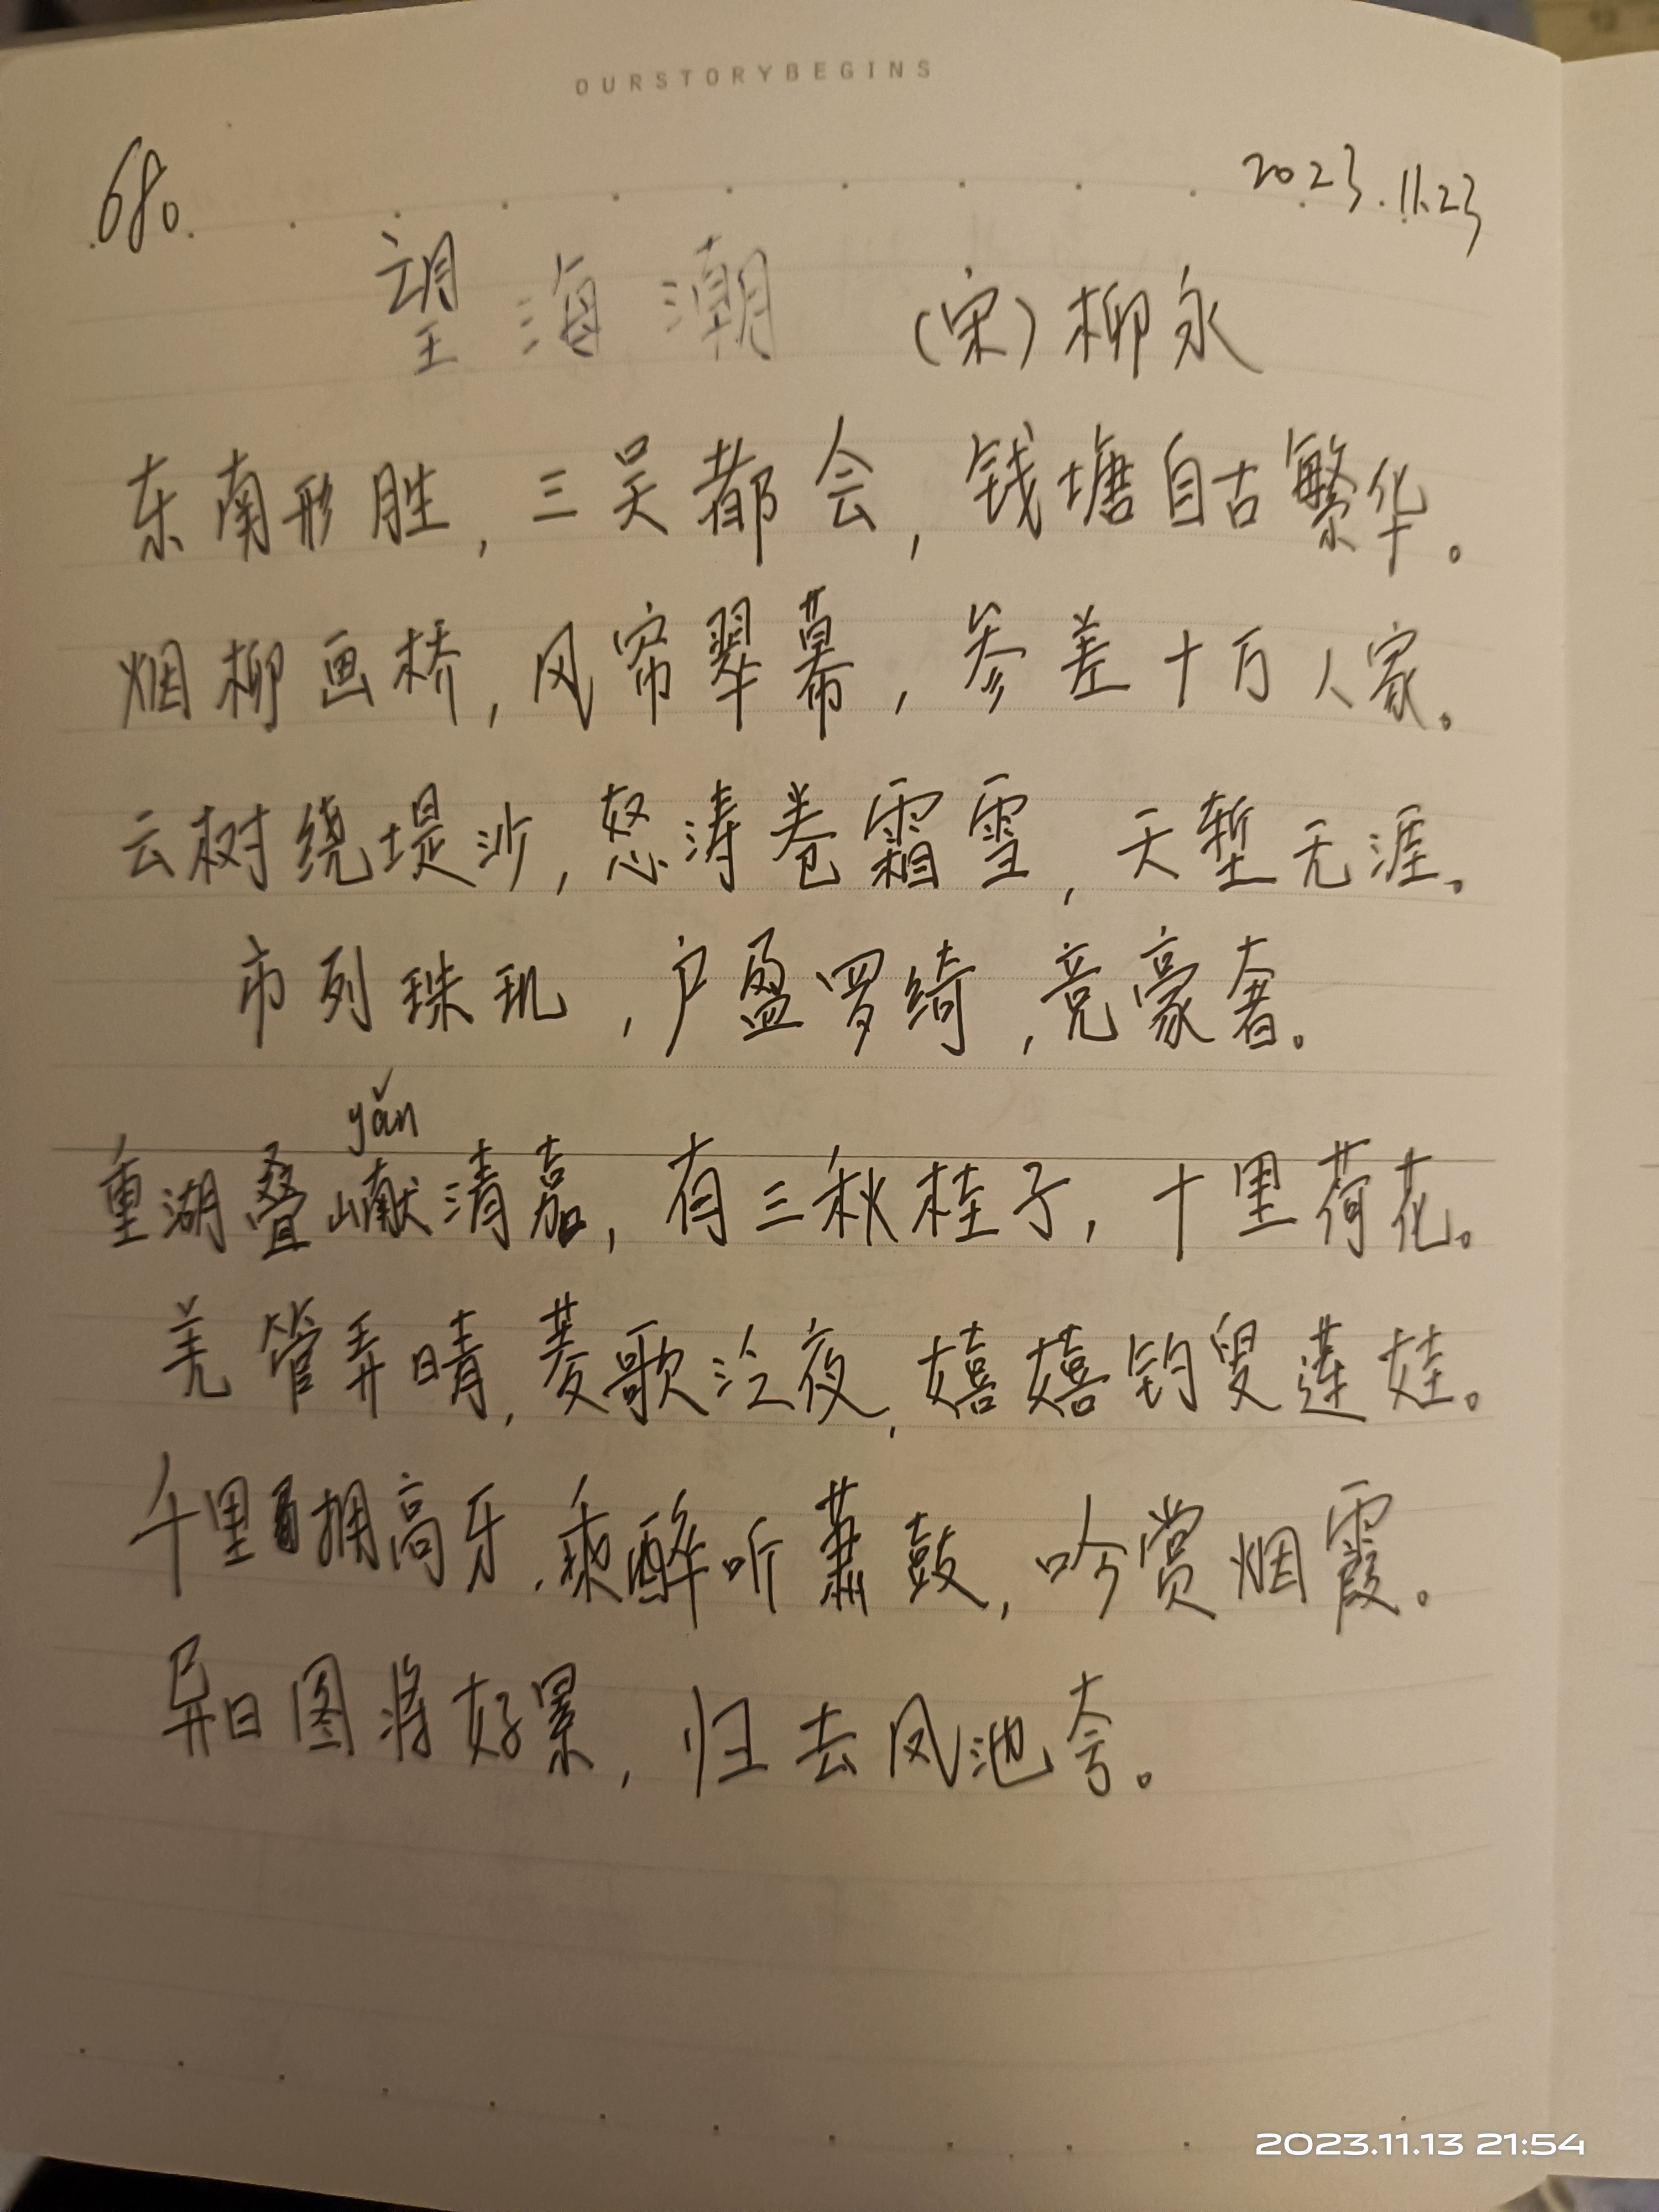 OURSTORYBEGINS
680. 2023.11.23
望海潮 (宋)柳永
东南形胜,三吴都会,钱塘自古繁华。
烟柳画桥,风帘翠幕,参差十万人家。
云树绕堤沙,怒涛卷霜雪,天堑无涯。
市列珠玑,户盈罗绮,竞豪奢。
yǎn
重湖叠巘清嘉,有三秋桂子,十里荷花。
羌管弄晴,菱歌泛夜,嬉嬉钓叟莲娃。
千里拥高牙,乘醉听萧鼓,吟赏烟霞。
异日图将好景,归去凤池夸。
2023.11.13 21:54